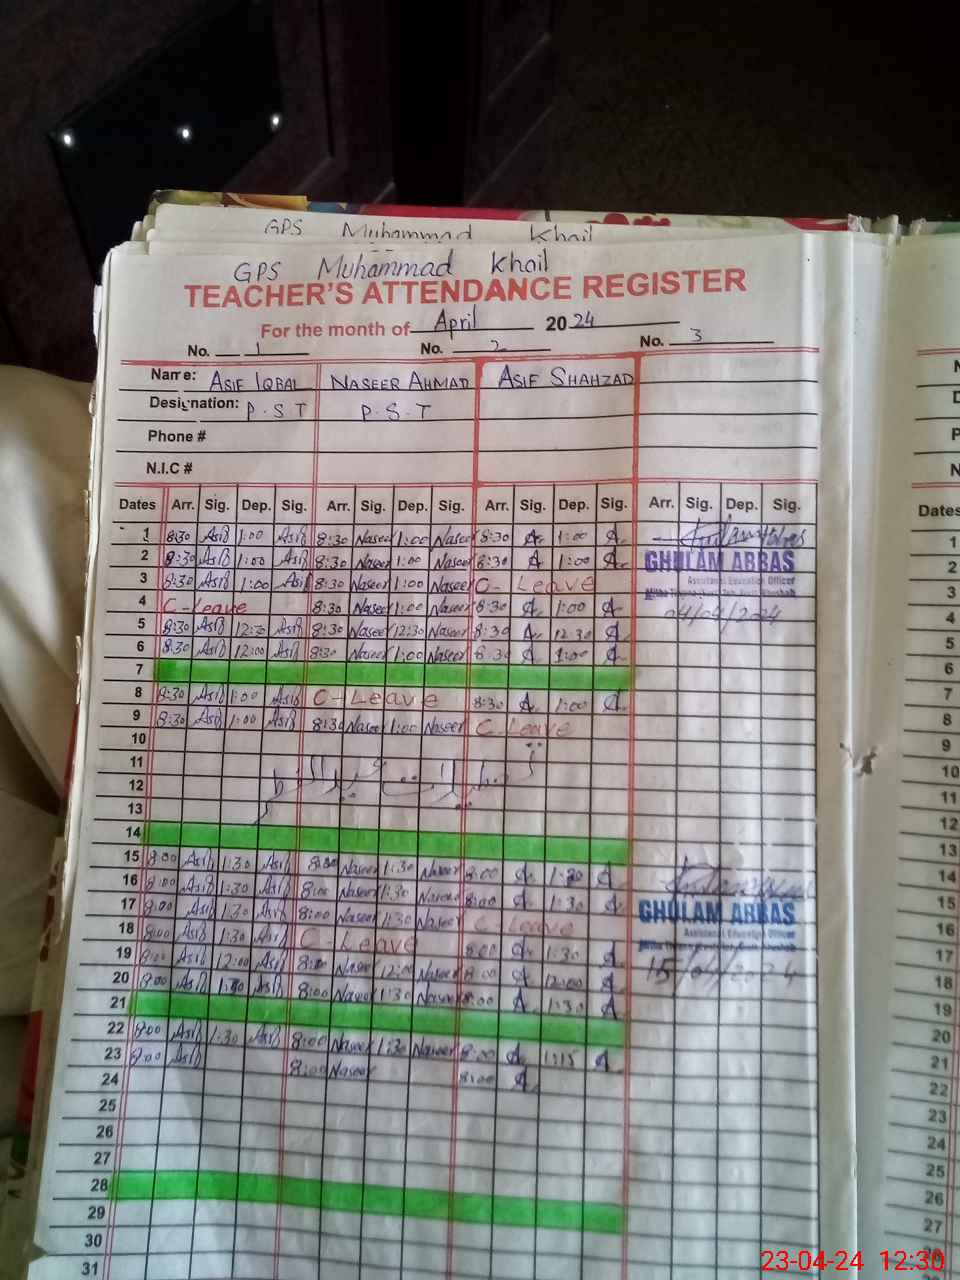 GPS Muhammad Khail
GPS Muhammad Khail
TEACHER'S ATTENDANCE REGISTER
For the month of April 2024
No. 1 No. 2 No. 3
Name: ASIF IQBAL NASEER AHMAD ASIF SHAHZAD
Designation: P.S.T P.S.T
Phone #
N.I.C #
Dates Arr. Sig. Dep. Sig. Arr. Sig. Dep. Sig. Arr. Sig. Dep. Sig. Arr. Sig. Dep. Sig.
1 8:30 Asif 1:00 Asif 8:30 Naseer 1:00 Naseer 8:30 A. 1:00 A.
2 8:30 Asif 1:00 Asif 8:30 Naseer 1:00 Naseer 8:30 A. 1:00 A.
GHULAM ABBAS
Assistant Education Officer
3 8:30 Asif 1:00 Asif 8:30 Naseer 1:00 Naseer C-Leave
4 C-Leave 8:30 Naseer 1:00 Naseer 8:30 A. 1:00 A.
04/04/2024
5 8:30 Asif 12:30 Asif 8:30 Naseer 12:30 Naseer 8:30 A. 12:30 A.
6 8:30 Asif 12:00 Asif 8:30 Naseer 1:00 Naseer 8:30 A. 1:00 A.
7
8 8:30 Asif 1:00 Asif C-Leave 8:30 A. 1:00 A.
9 8:30 Asif 1:00 Asif 8:30 Naseer 1:00 Naseer C-Leave
10
11
12
13
14
15 8:00 Asif 1:30 Asif 8:00 Naseer 1:30 Naseer 8:00 A. 1:30 A.
16 8:00 Asif 1:30 Asif 8:00 Naseer 1:30 Naseer 8:00 A. 1:30 A.
17 8:00 Asif 1:30 Asif 8:00 Naseer 1:30 Naseer C-Leave
GHULAM ABBAS
Assistant Education Officer
18 8:00 Asif 1:30 Asif C-Leave 8:00 A. 1:30 A.
15/04/2024
19 8:00 Asif 12:00 Asif 8:00 Naseer 12:00 Naseer 8:00 A. 12:00 A.
20 8:00 Asif 1:30 Asif 8:00 Naseer 1:30 Naseer 8:00 A. 1:30 A.
21
22 8:00 Asif 1:30 Asif 8:00 Naseer 1:30 Naseer 8:00 A. 1:15 A.
23 8:00 Asif 8:00 Naseer 8:00 A.
24
25
26
27
28
29
30
31
Dates
1
2
3
4
5
6
7
8
9
10
11
12
13
14
15
16
17
18
19
20
21
22
23
24
25
26
27
23-04-24 12:30